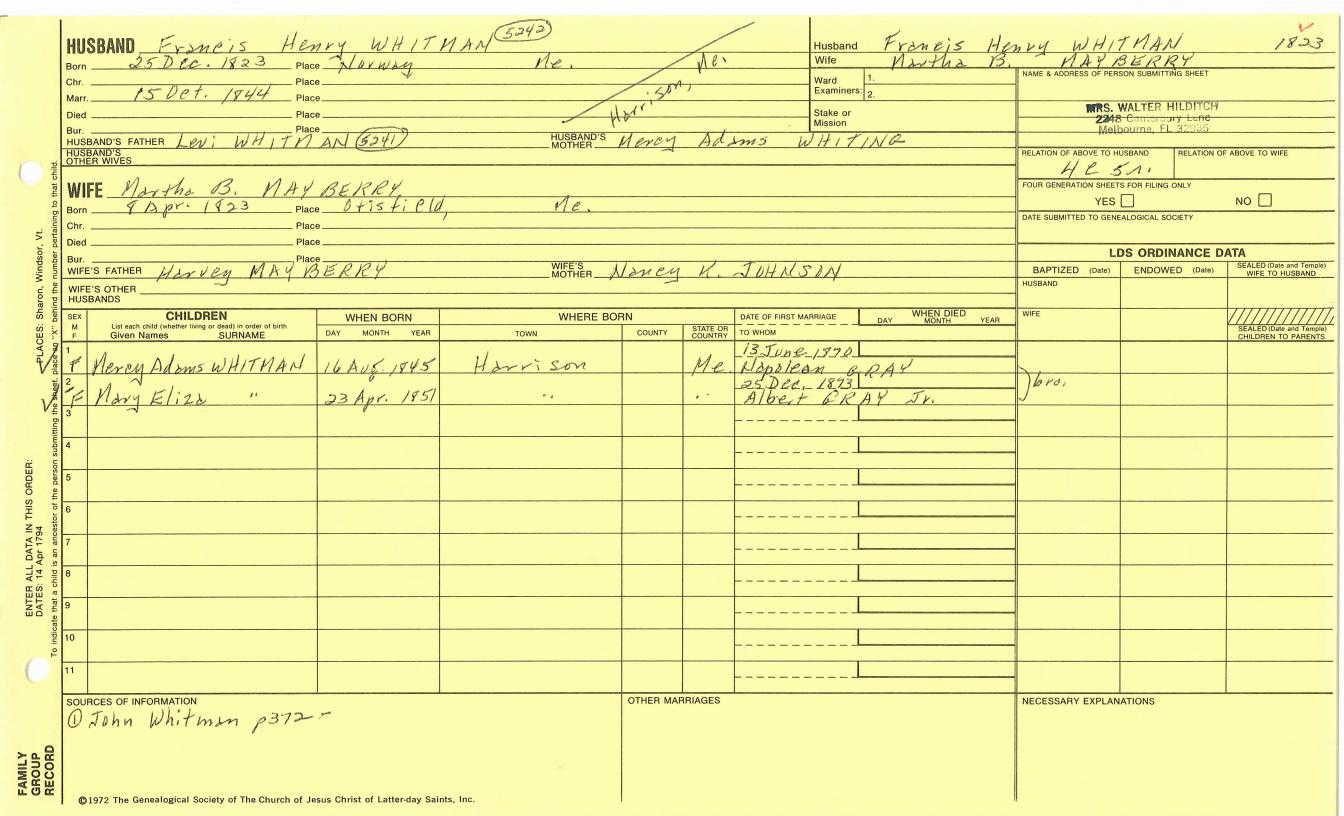 HUSBAND Francis Henry WHITMAN 5242
Born 25 Dec. 1823 Place Norway Me.
Chr. Place
Marr. 15 Oct. 1844 Place
Harrison, Me.
Died Place
Bur. Place
HUSBAND'S FATHER Levi WHITMAN 5241 HUSBAND'S MOTHER Mercy Adams WHITING
HUSBAND'S OTHER WIVES
WIFE Martha B. MAYBERRY
Born 8 Apr. 1823 Place Otisfield, Me.
Chr. Place
Died Place
Bur. Place
WIFE'S FATHER Harvey MAYBERRY WIFE'S MOTHER Nancy K. JOHNSON
WIFE'S OTHER HUSBANDS
Husband Francis Henry WHITMAN 1823
Wife Martha B. MAYBERRY
Ward Examiners: 1.
2.
Stake or Mission
NAME & ADDRESS OF PERSON SUBMITTING SHEET
MRS. WALTER HILDITCH
2248 Canterbury Lane
Melbourne, FL 32935
RELATION OF ABOVE TO HUSBAND RELATION OF ABOVE TO WIFE
4C 5r.
FOUR GENERATION SHEETS FOR FILING ONLY
YES NO
DATE SUBMITTED TO GENEALOGICAL SOCIETY
LDS ORDINANCE DATA
BAPTIZED (Date) ENDOWED (Date) SEALED (Date and Temple) WIFE TO HUSBAND
HUSBAND
WIFE
SEALED (Date and Temple) CHILDREN TO PARENTS
SEX M F
CHILDREN
List each child (whether living or dead) in order of birth
Given Names SURNAME
WHEN BORN
DAY MONTH YEAR
WHERE BORN
TOWN COUNTY STATE OR COUNTRY
DATE OF FIRST MARRIAGE
TO WHOM
WHEN DIED
DAY MONTH YEAR
1 13 June 1870
F Mercy Adams WHITMAN 16 Aug. 1845 Harrison Me. Napolean GRAY
2 25 Dec. 1873
F Mary Eliza " 23 Apr. 1851 " " Albert GRAY Jr.
bro.
3
4
5
6
7
8
9
10
11
SOURCES OF INFORMATION
① John Whitman p372 -
OTHER MARRIAGES
NECESSARY EXPLANATIONS
©1972 The Genealogical Society of The Church of Jesus Christ of Latter-day Saints, Inc.
FAMILY GROUP RECORD
ENTER ALL DATA IN THIS ORDER:
DATES: 14 Apr 1794
PLACES: Sharon, Windsor, Vt.
To indicate that a child is an ancestor of the person submitting the sheet, place an "X" behind the number pertaining to that child.